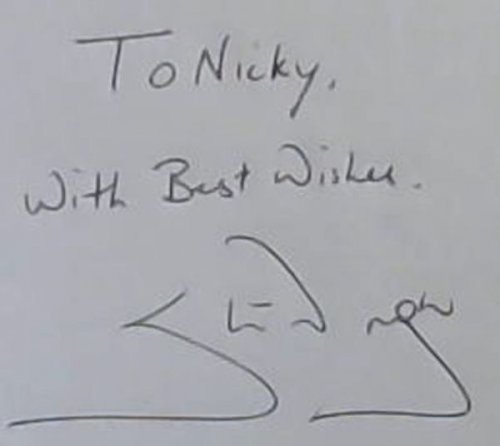 To Nicky.
With Best Wishes.